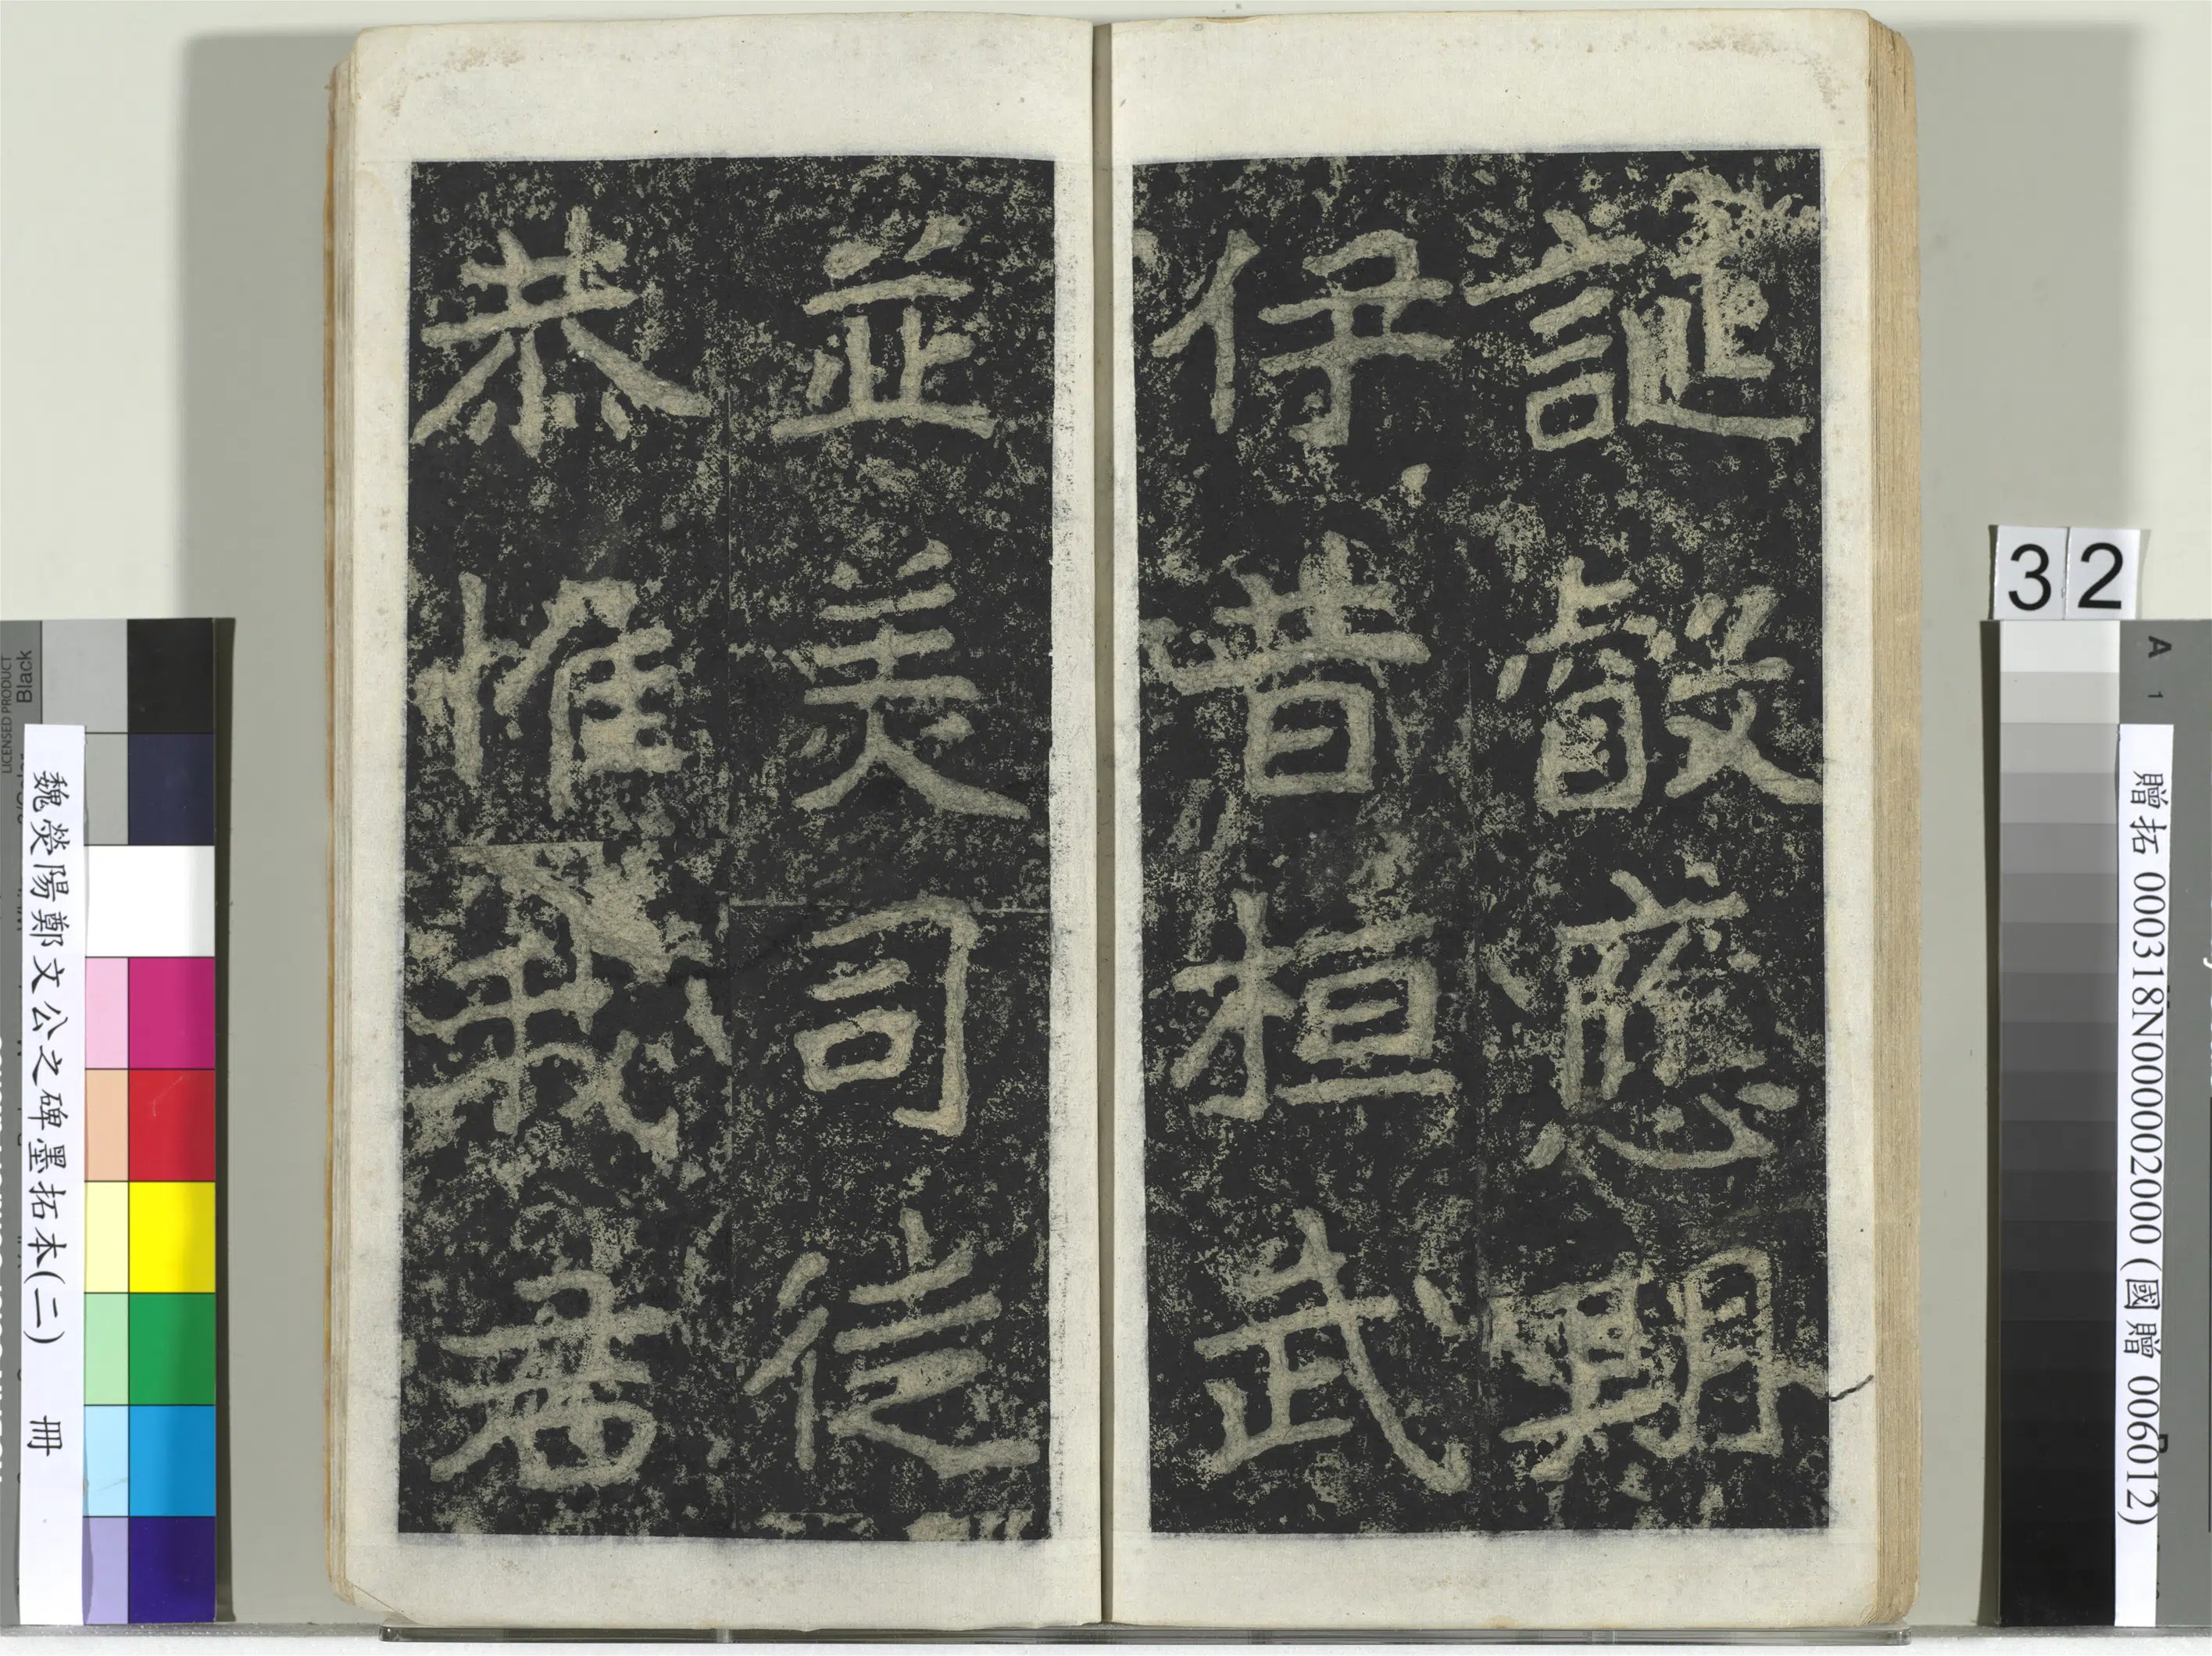 誕叡應期
伊昔桓武
並美司徒
恭惟我君
32
贈拓 000318N000002000 (國贈 006012)
魏滎陽鄭文公之碑墨拓本(二) 冊
A 1
LICENSED PRODUCT
Black